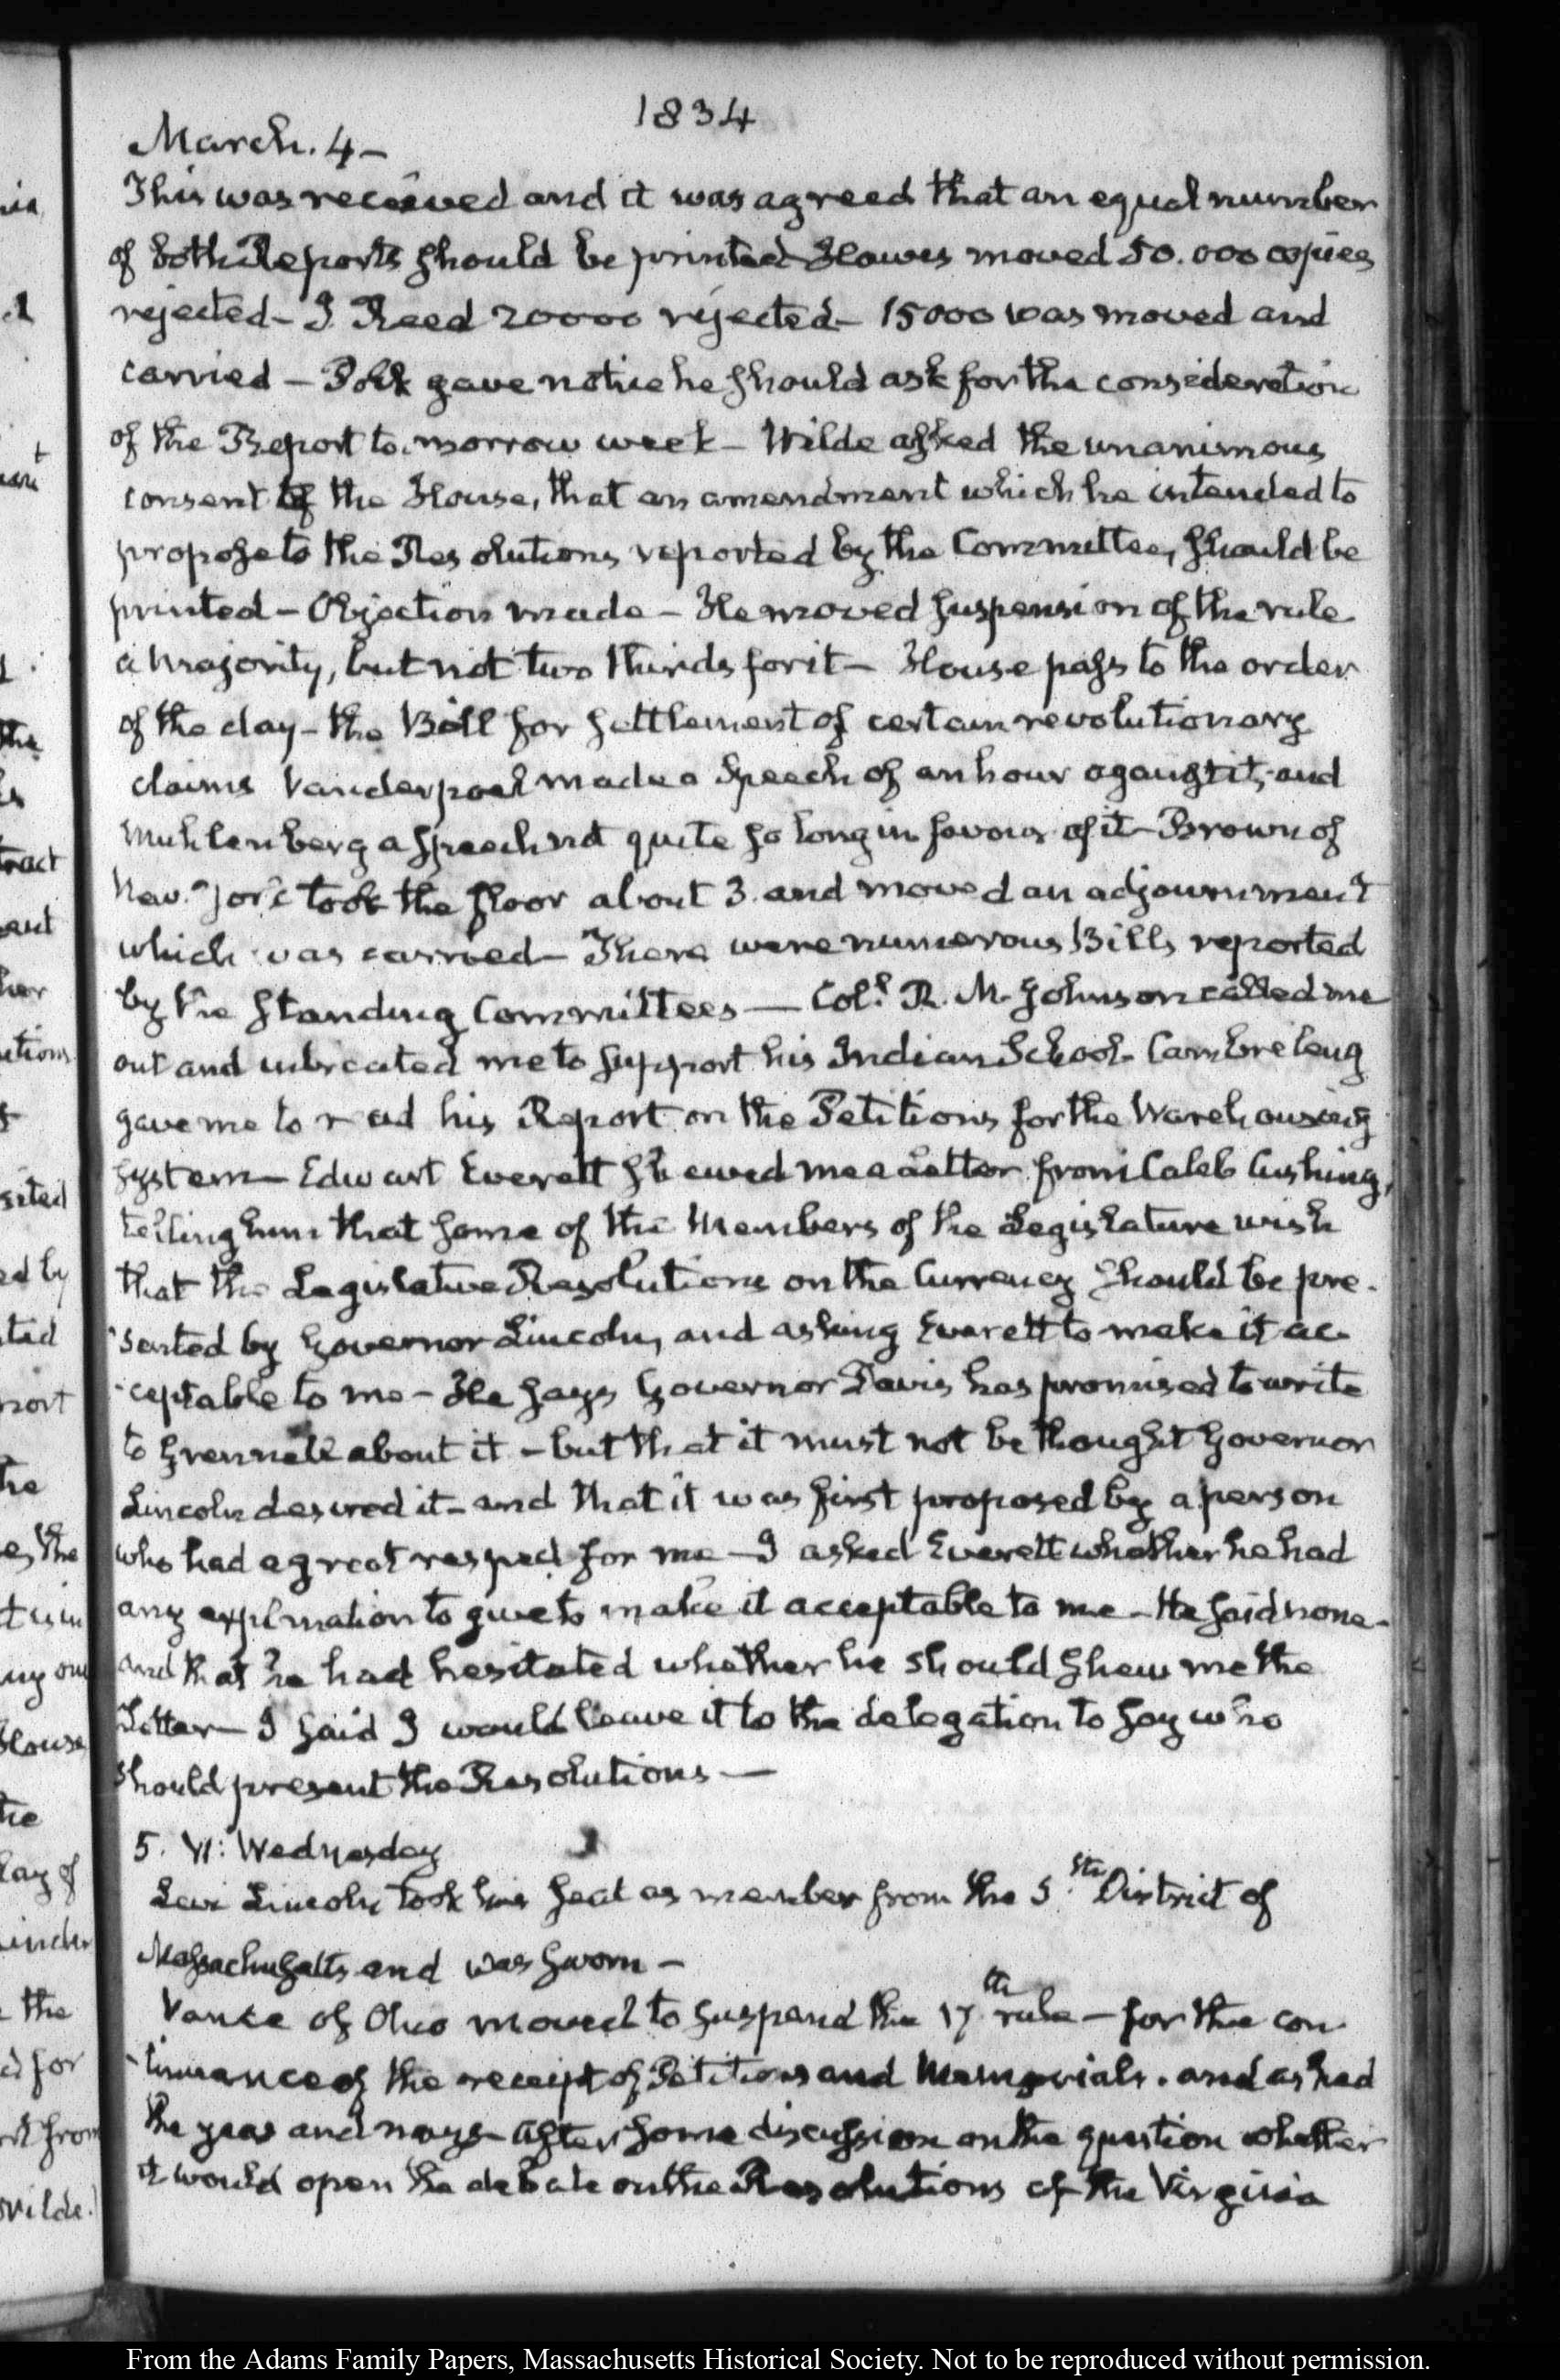 1834
March. 4 –
This was received and it was agreed that an equal number
of both Reports should be printed Hawes moved 50.000 copies
rejected – J. Reed 20000 rejected – 15000 was moved and
carried – Polk gave notice he should ask for the consideration
of the Report to-morrow week – Wilde asked the unanimous
consent of the House, that an amendment which he intended to
propose to the Resolutions reported by the Committee, should be
printed – Objection made – He moved suspension of the rule
a Majority, but not two thirds for it – House pass to the order
of the day – the Bill for settlement of certain revolutionary
claims Vanderpoel made a Speech of an hour against it, and
Muhlenberg a speech not quite so long in favour of it – Brown of
New-York took the floor about 3. and moved an adjournment
which was carried – There were numerous Bills reported
by the Standing Committees — Coll. R. M. Johnson called me
out and me to support his Indian School. Cambreleng
gave me to read his Report on the Petitions for the Warehousing
system – Edward Everett shewed me a Letter from Caleb Cushing,
telling him that some of the Members of the Legislature wish
that the Legislative Resolutions on the Currency should be pre-
sented by Governor Lincoln, and asking Everett to make it ac-
ceptable to me – He says Governor Davis has promised to write
to Grennell about it – but that it must not be thought Governor
Lincoln desired it – and that it was first proposed by a person
who had a great respect for me – I asked Everett whether he had
any explanation to give to make it acceptable to me – He said none –
and that he had hesitated whether he should shew me the
Letter – I said I would leave it to the delegation to say who
should present the Resolutions —
5. VI: Wednesday
Levi Lincoln took his seat as member from the 5.th District of
Massachusetts and was sworn –
Vance of Ohio moved to suspend the 17th rule – for the con-
tinuance of the receipt of Petitions and Memorials. and asked
the yeas and nays – After some discussion on the question whether
it would open the debate on the Resolutions of the Virginia
From the Adams Family Papers, Massachusetts Historical Society. Not to be reproduced without permission.